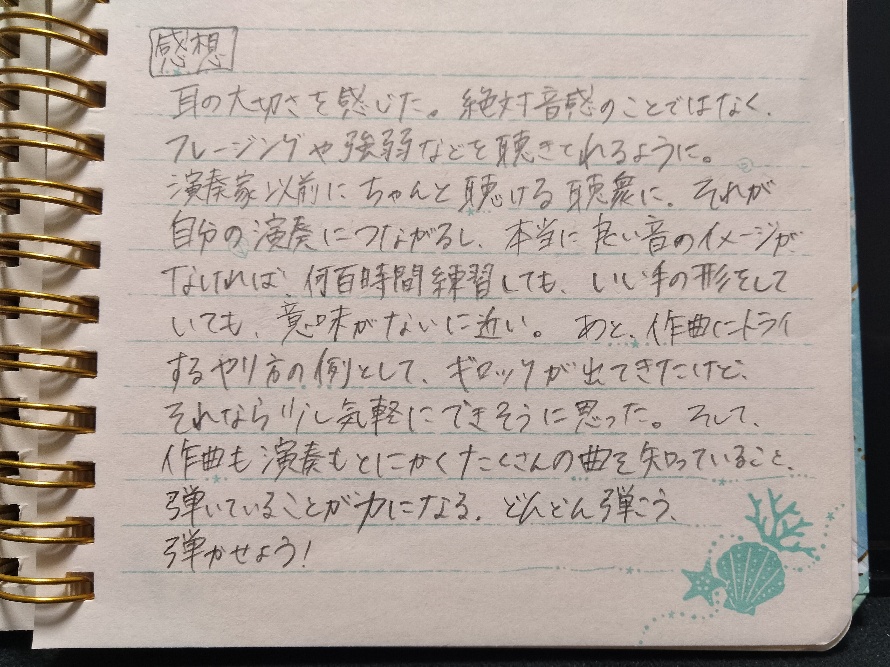 感想
耳の大切さを感じた。絶対音感のことではなく、
フレージングや強弱などを聴きとれるように。
演奏家以前にちゃんと聴ける聴衆に。それが
自分の演奏につながるし、本当に良い音のイメージが
なければ、何百時間練習しても、いい手の形をして
いても、意味がないに近い。あと、作曲にトライ
するやり方の例として、ギロックが出てきたけど、
それなら少し気軽にできそうに思った。そして、
作曲も演奏もとにかくたくさんの曲を知っていること、
弾いていることが力になる。どんどん弾こう、
弾かせよう!